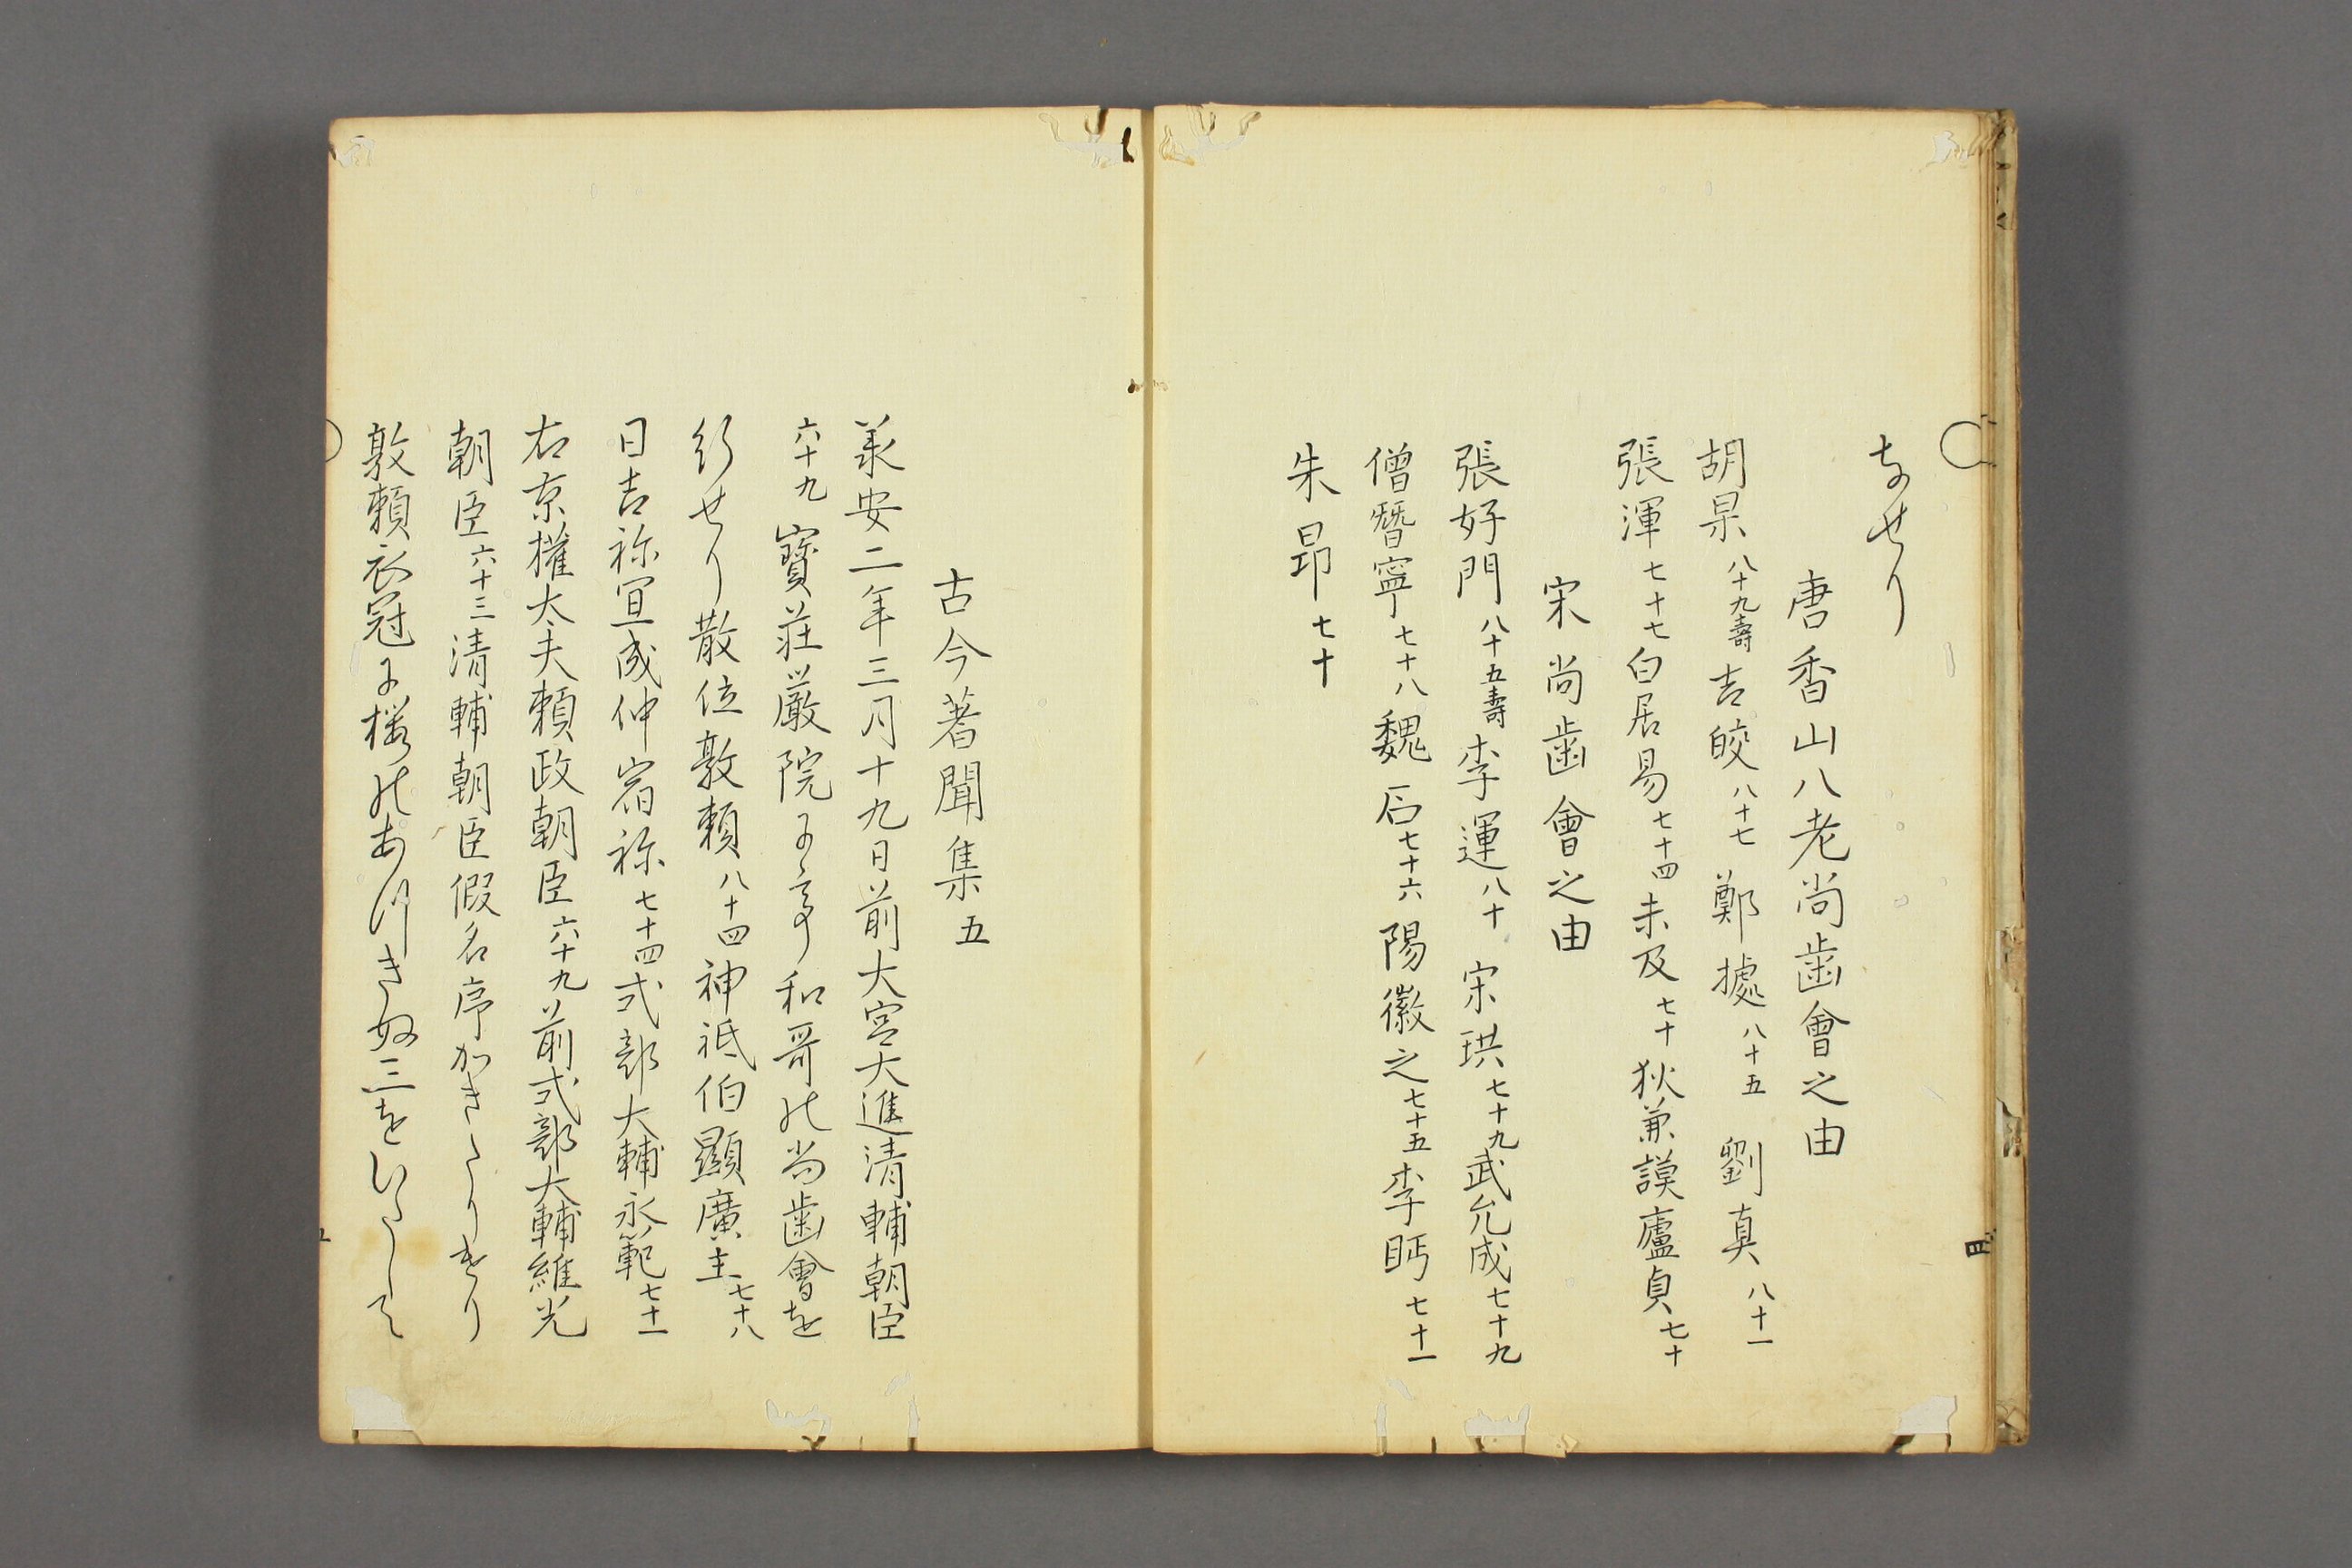 なせり
唐香山八老尚歯會之由
胡杲八十九壽吉皎八十七鄭據八十五劉真八十一
張渾七十七白居易七十四未及七十狄兼謨廬貞七十
宋尚歯會之由
張好門八十五壽李運八十宋珙七十九武允成七十九
僧賛寧七十八魏石七十六陽徽之七十五李眄七十一
朱昂七十
四
古今著聞集五
承安二年三月十九日前大宮大進清輔朝臣
六十九寳莊嚴院にて和哥の尚歯會を
行せり散位敦頼八十四神祇伯顯廣王七十八
日吉祢宜成仲宿祢七十四式部大輔永範七十一
右京權大夫頼政朝臣六十九前式部大輔維光
朝臣六十三清輔朝臣假名序かきたりけり
敦頼衣冠に桜のあつきぬ三をいたして